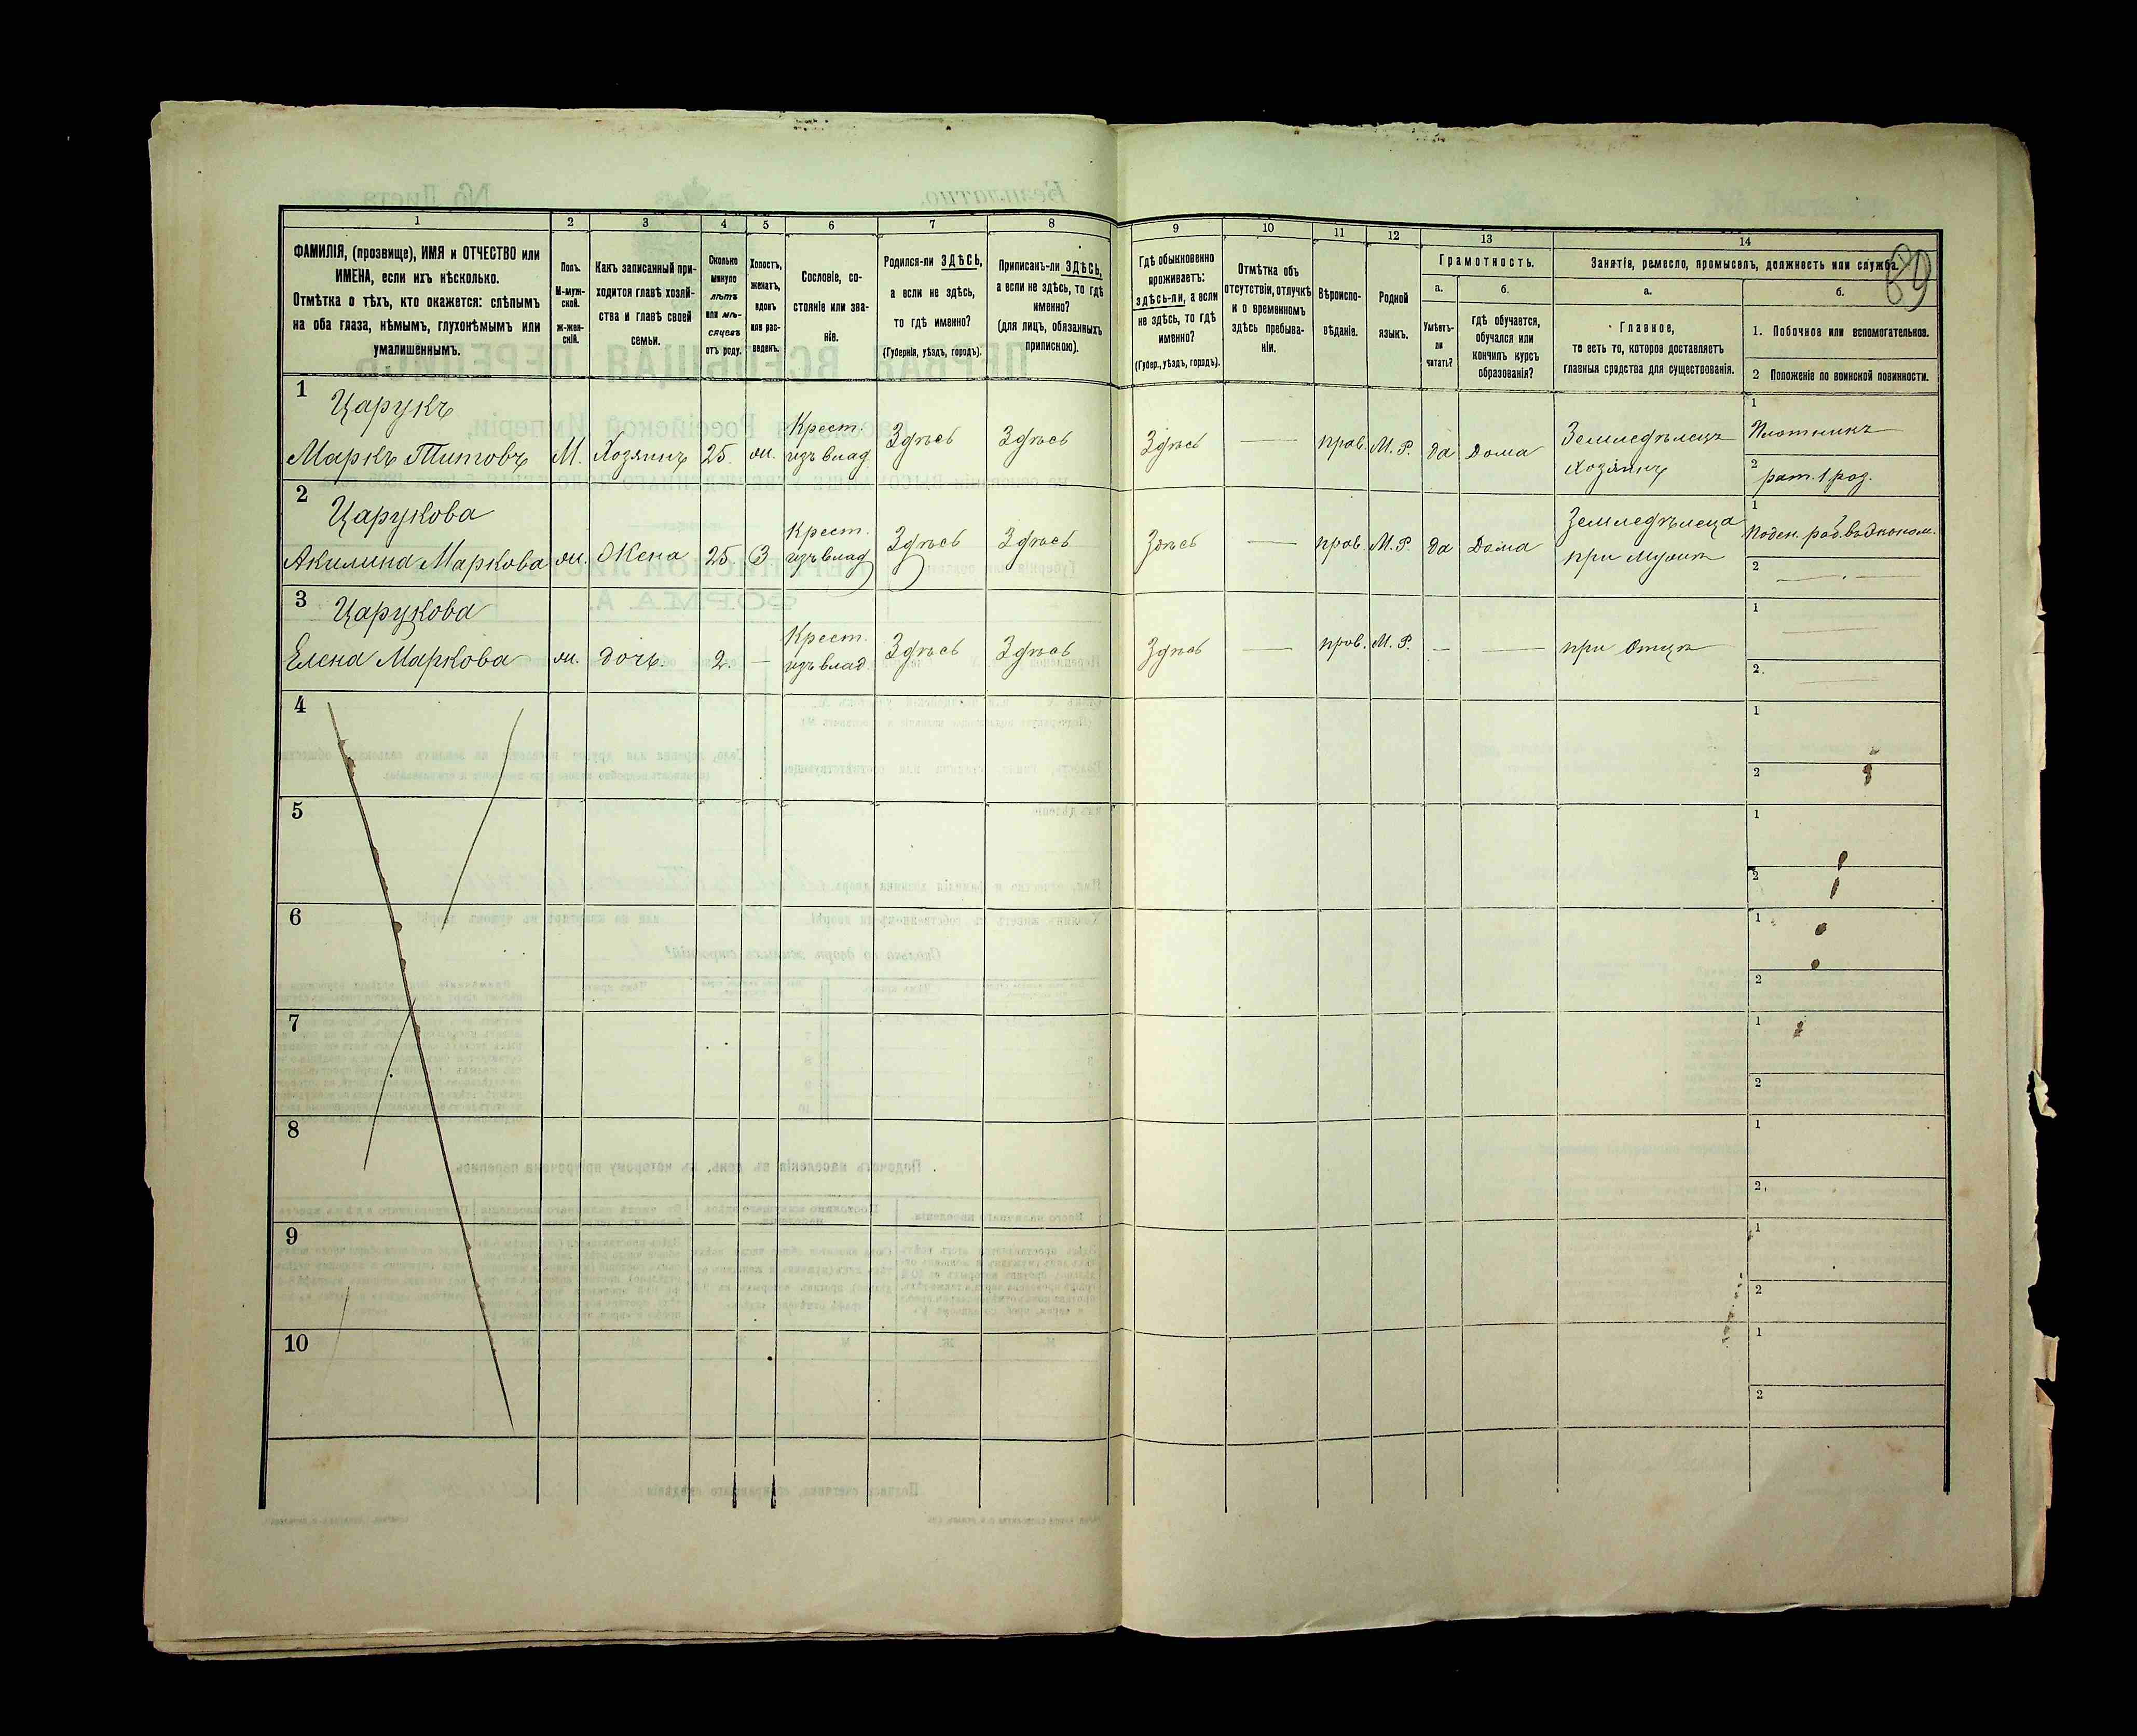 89
1 2 3 4 5 6 7 8 9 10 11 12 13 14
ФАМИЛІЯ, (прозвище), ИМЯ и ОТЧЕСТВО или
ИМЕНА, если ихъ нѣсколько.
Отмѣтка о тѣхъ, кто окажется: слѣпымъ
на оба глаза, нѣмымъ, глухонѣмымъ или
умалишеннымъ.
Полъ.
М-муж-
ской.
ж-жен-
скій.
Какъ записанный при-
ходится главѣ хозяй-
ства и главѣ своей
семьи.
Сколько
минуло
лѣтъ
или мѣ-
сяцевъ
отъ роду.
Холостъ,
женатъ,
вдовъ
или раз-
веденъ.
Сословіе, со-
стояніе или зва-
ніе.
Родился-ли ЗДѢСЬ,
а если не здѣсь,
то гдѣ именно?
(Губернія, уѣздъ, городъ).
Приписанъ-ли ЗДѢСЬ,
а если не здѣсь, то гдѣ
именно?
(для лицъ, обязанныхъ
припискою).
Гдѣ обыкновенно
проживаетъ:
здѣсь-ли, а если
не здѣсь, то гдѣ
именно?
(Губер., уѣздъ, городъ).
Отмѣтка объ
отсутствіи, отлучкѣ
и о временномъ
здѣсь пребыва-
ніи.
Вѣроиспо-
вѣданіе.
Родной
языкъ.
Грамотность.
а.
Умѣетъ-
ли
читать?
б.
гдѣ обучается,
обучался или
кончилъ курсъ
образованія?
Занятіе, ремесло, промыселъ, должность или служба.
а.
Главное,
то есть то, которое доставляетъ
главныя средства для существованія.
б.
1. Побочное или вспомогательное.
2 Положеніе по воинской повинности.
1 Царукъ
Маркъ Титовъ М. Хозяинъ 25 ж. Крест. изъ влад. Здѣсь Здѣсь Здѣсь — прав. М. Р. да Дома Земледѣлецъ Хозяинъ
1 Плотникъ
2 рат. 1 раз.
2 Царукова
Акилина Маркова ж. Жена 25 З Крест. изъ влад. Здѣсь Здѣсь Здѣсь — прав. М. Р. да Дома Земледѣлица при Мужѣ
1 Поден. раб. въ эконом.
2 —
3 Царукова
Елена Маркова ж. дочь. 2. — Крест. изъ влад. Здѣсь Здѣсь Здѣсь — прав. М. Р. — — при Отцѣ
1 —
2. —
4
1
2
5
1
2
6
1
2
7
1
2
8
1
2.
9
1
2
10
1
2